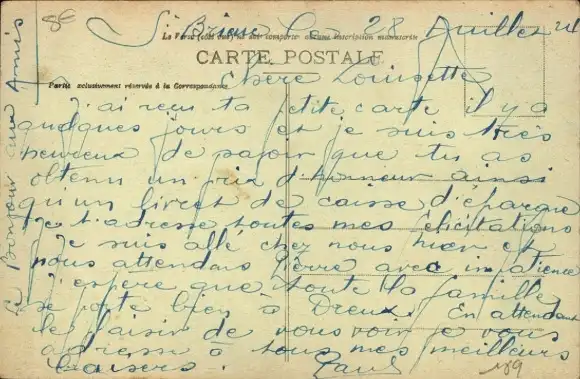 St Brieuc le 28 Juillet 24
Le Verso
CARTE POSTALE
Partie exclusivement réservée à la Correspondance
Chère Louisette
J'ai reçu ta petite carte il y a
quelques jours et je suis très
heureux de savoir que tu as
obtenu un prix d'honneur ainsi
qu'un livret de caisse d'épargne
Je t'adresse toutes mes félicitations
Je suis allé chez nous hier et
nous attendons Pierre avec impatience
J'espère que toute la famille
se porte bien à Dreux. En attendant
le plaisir de vous voir je vous
adresse à tous mes meilleurs
baisers. Paul
Le Bonjour aux Amis
8€
189